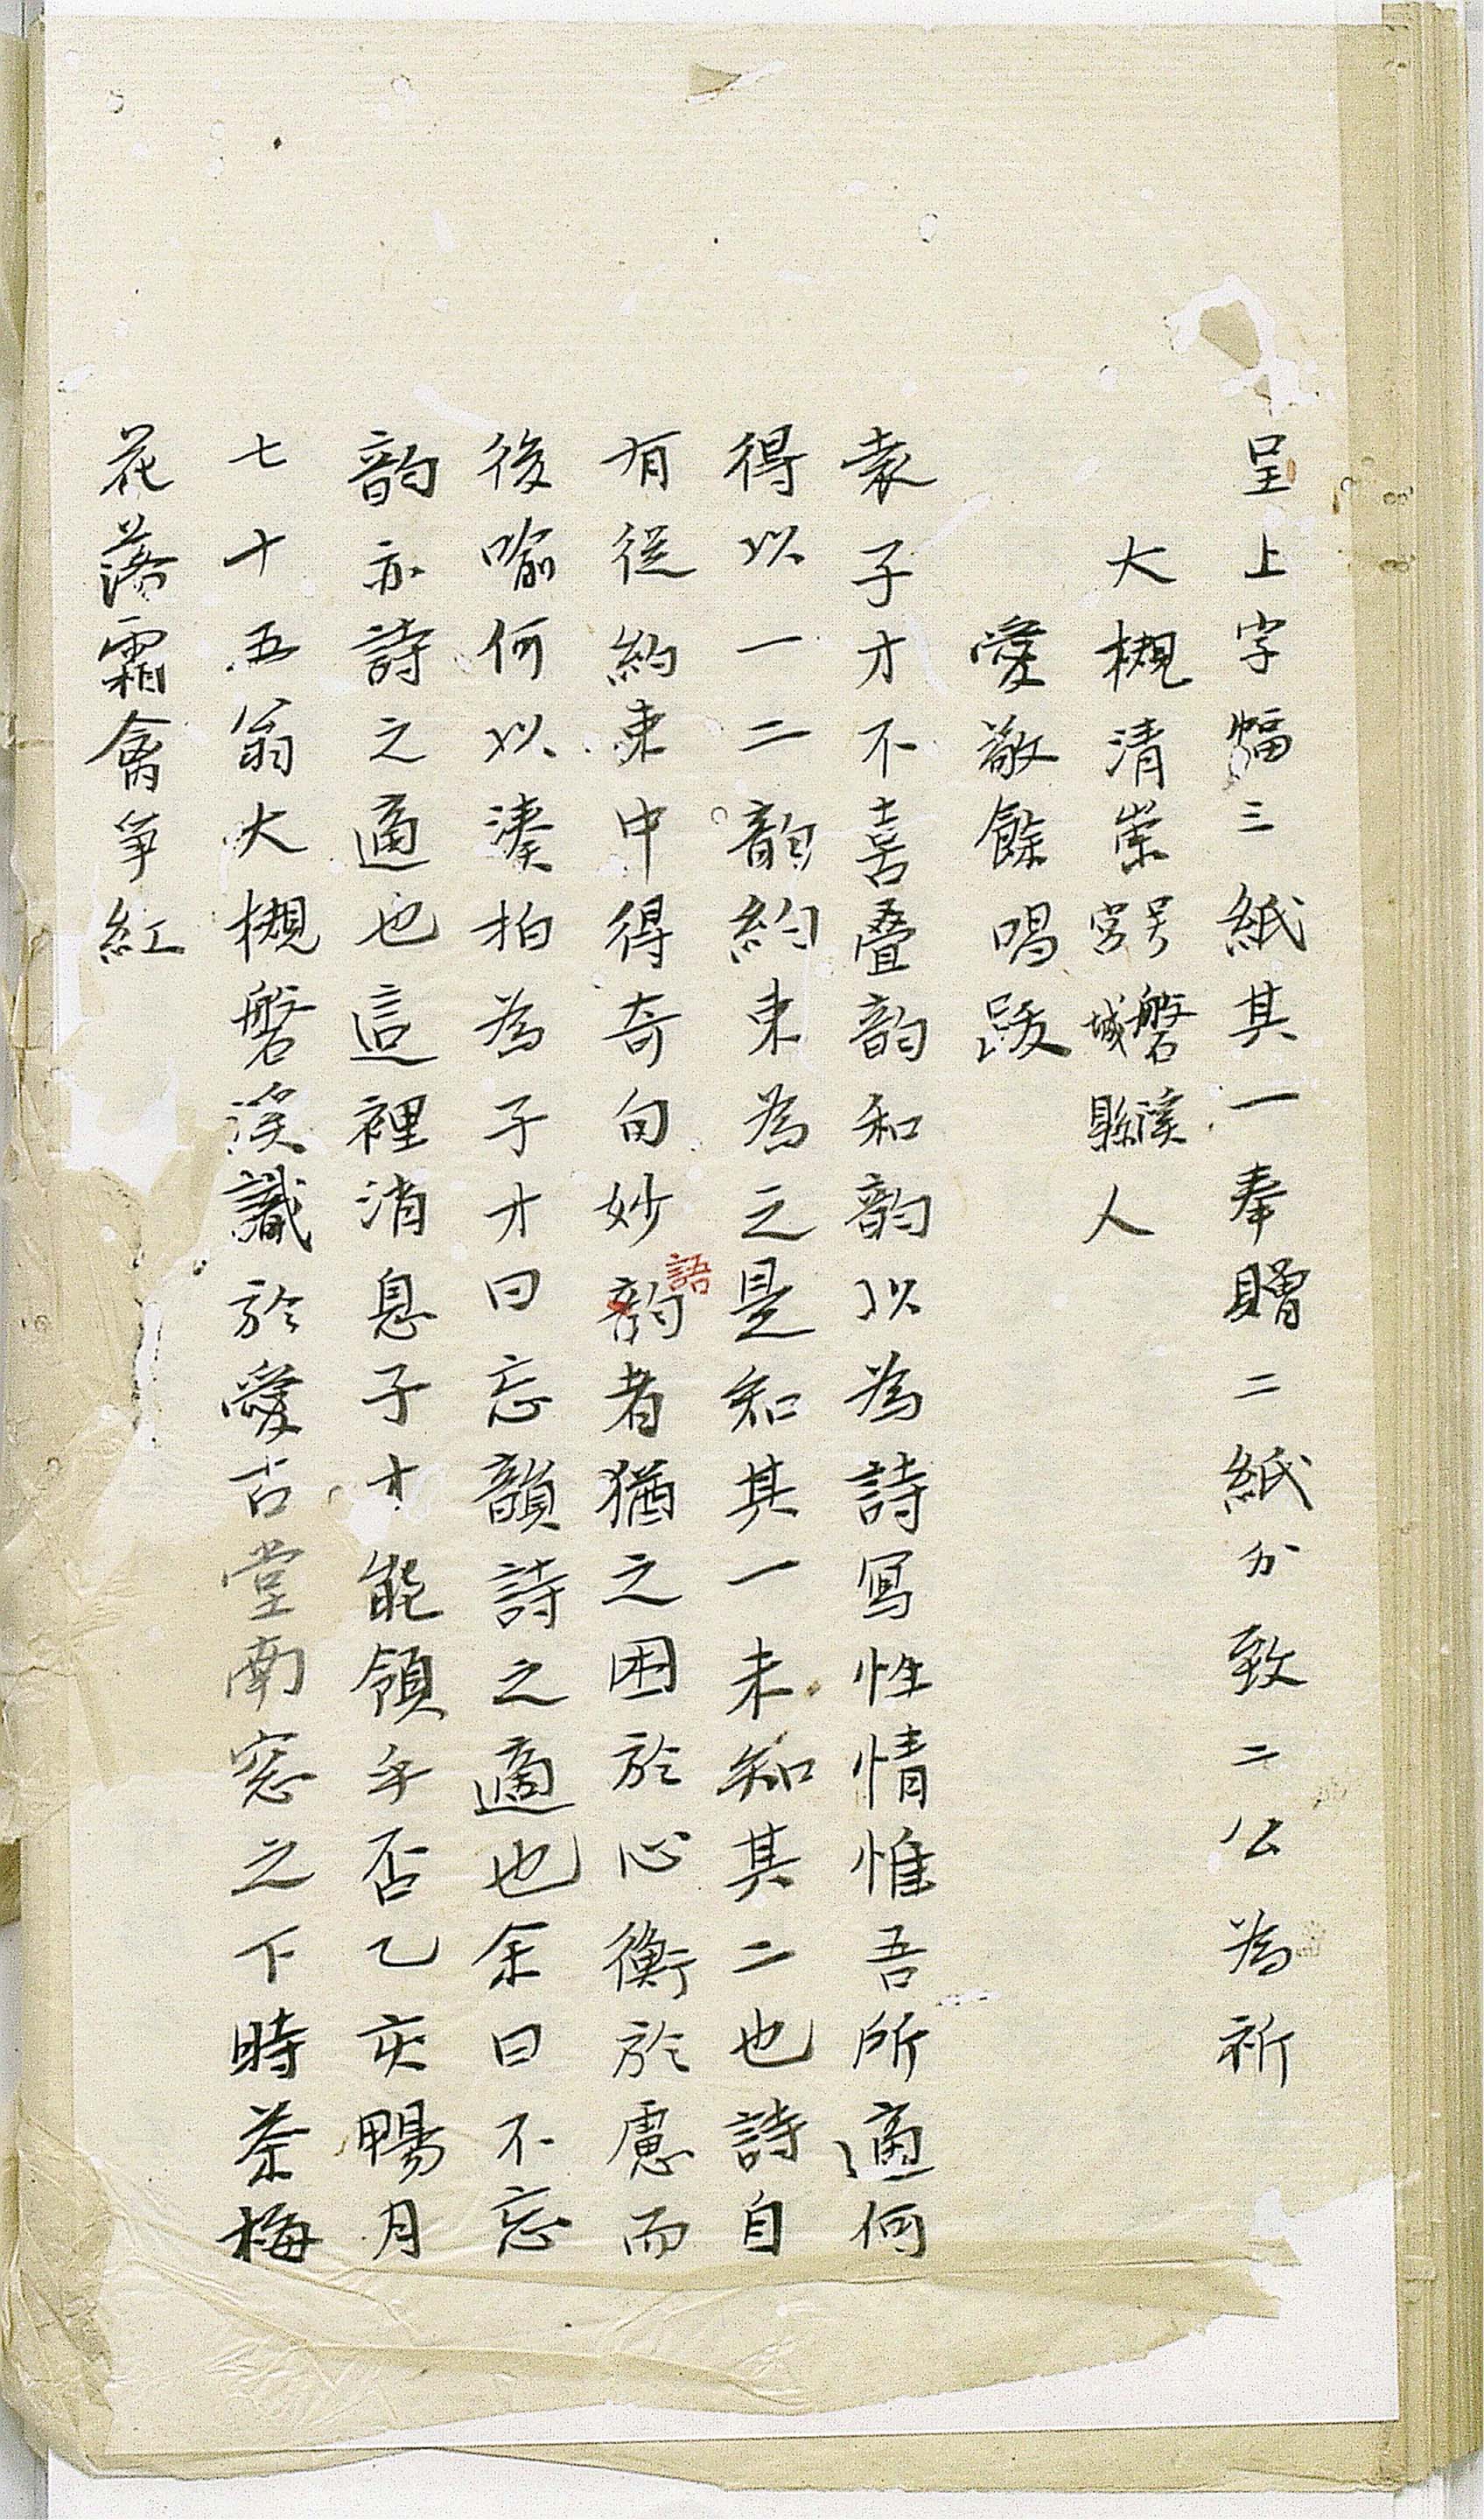 呈上字幅三紙其一奉贈二紙分致二公為祈
大槻清崇号磐溪宮城縣人
愛敬餘唱跋
袁子才不喜疊韵和韵以為詩寫性情惟吾所適何
得以一二韵約束為之是知其一未知其二也詩自
有從約束中得奇句妙韵語者猶之困於心衡於慮而
後喻何以湊拍為子才曰忘韻詩之適也余曰不忘
韵亦詩之適也這裡消息子才能領乎否乙亥暢月
七十五翁大槻磐溪識於愛古堂南窓之下時茶梅
花落霜禽爭紅